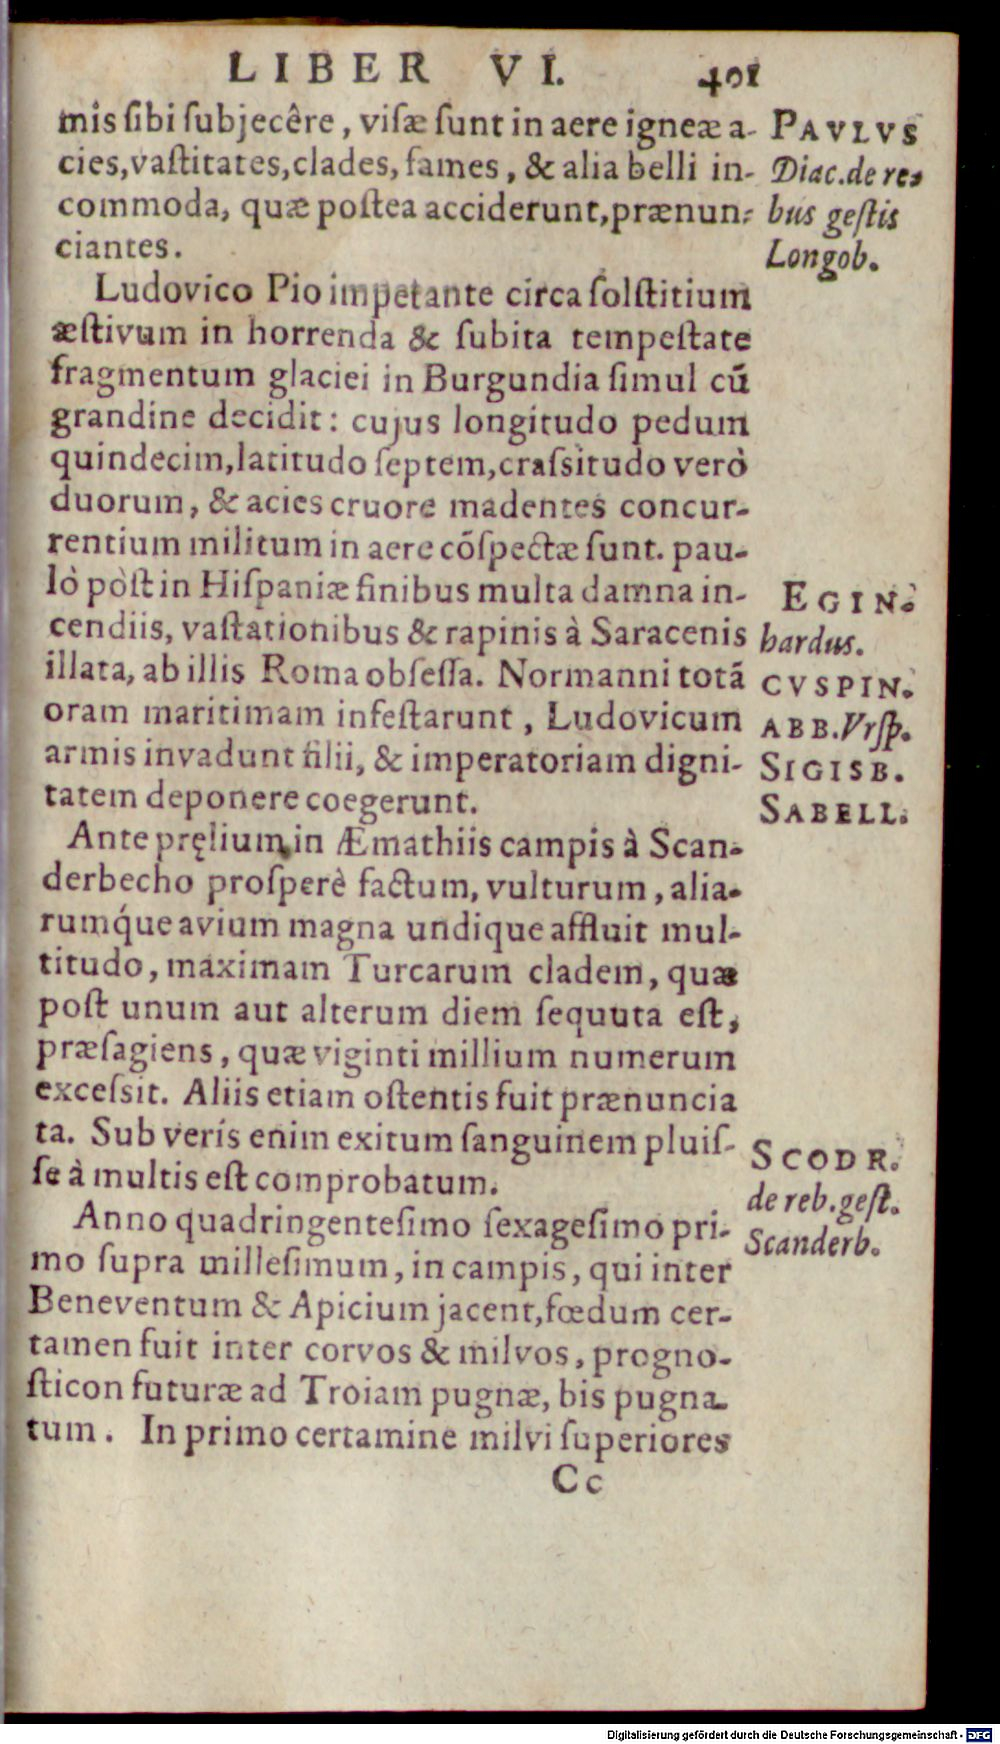 LIBER VI. 401
mis sibi subjecêre, visæ sunt in aere igneæ a-
cies, vastitates, clades, fames, & alia belli in-
commoda, quæ postea acciderunt, prænun-
ciantes.
PAVLVS
Diac. de re-
bus gestis
Longob.
Ludovico Pio impetante circa solstitium
æstivum in horrenda & subita tempestate
fragmentum glaciei in Burgundia simul cū
grandine decidit: cujus longitudo pedum
quindecim, latitudo septem, crassitudo verò
duorum, & acies cruore madentes concur-
rentium militum in aere cōspectæ sunt. pau-
lò pòst in Hispaniæ finibus multa damna in-
cendiis, vastationibus & rapinis à Saracenis
illata, ab illis Roma obsessa. Normanni totā
oram maritimam infestarunt, Ludovicum
armis invadunt filii, & imperatoriam digni-
tatem deponere coegerunt.
EGIN-
hardus.
CVSPIN.
ABB. Vrsp.
SIGISB.
SABELL.
Ante pręlium in Æmathiis campis à Scan-
derbecho prosperè factum, vulturum, alia-
rumq́ue avium magna undique affluit mul-
titudo, maximam Turcarum cladem, quæ
post unum aut alterum diem sequuta est,
præsagiens, quæ viginti millium numerum
excessit. Aliis etiam ostentis fuit prænuncia
ta. Sub verís enim exitum sanguinem pluis-
se à multis est comprobatum.
SCODR.
de reb. gest.
Scanderb.
Anno quadringentesimo sexagesimo pri-
mo supra millesimum, in campis, qui inter
Beneventum & Apicium jacent, fœdum cer-
tamen fuit inter corvos & milvos, progno-
sticon futuræ ad Troiam pugnæ, bis pugna-
tum. In primo certamine milvi superiores
Cc
Digitalisierung gefördert durch die Deutsche Forschungsgemeinschaft - DFG